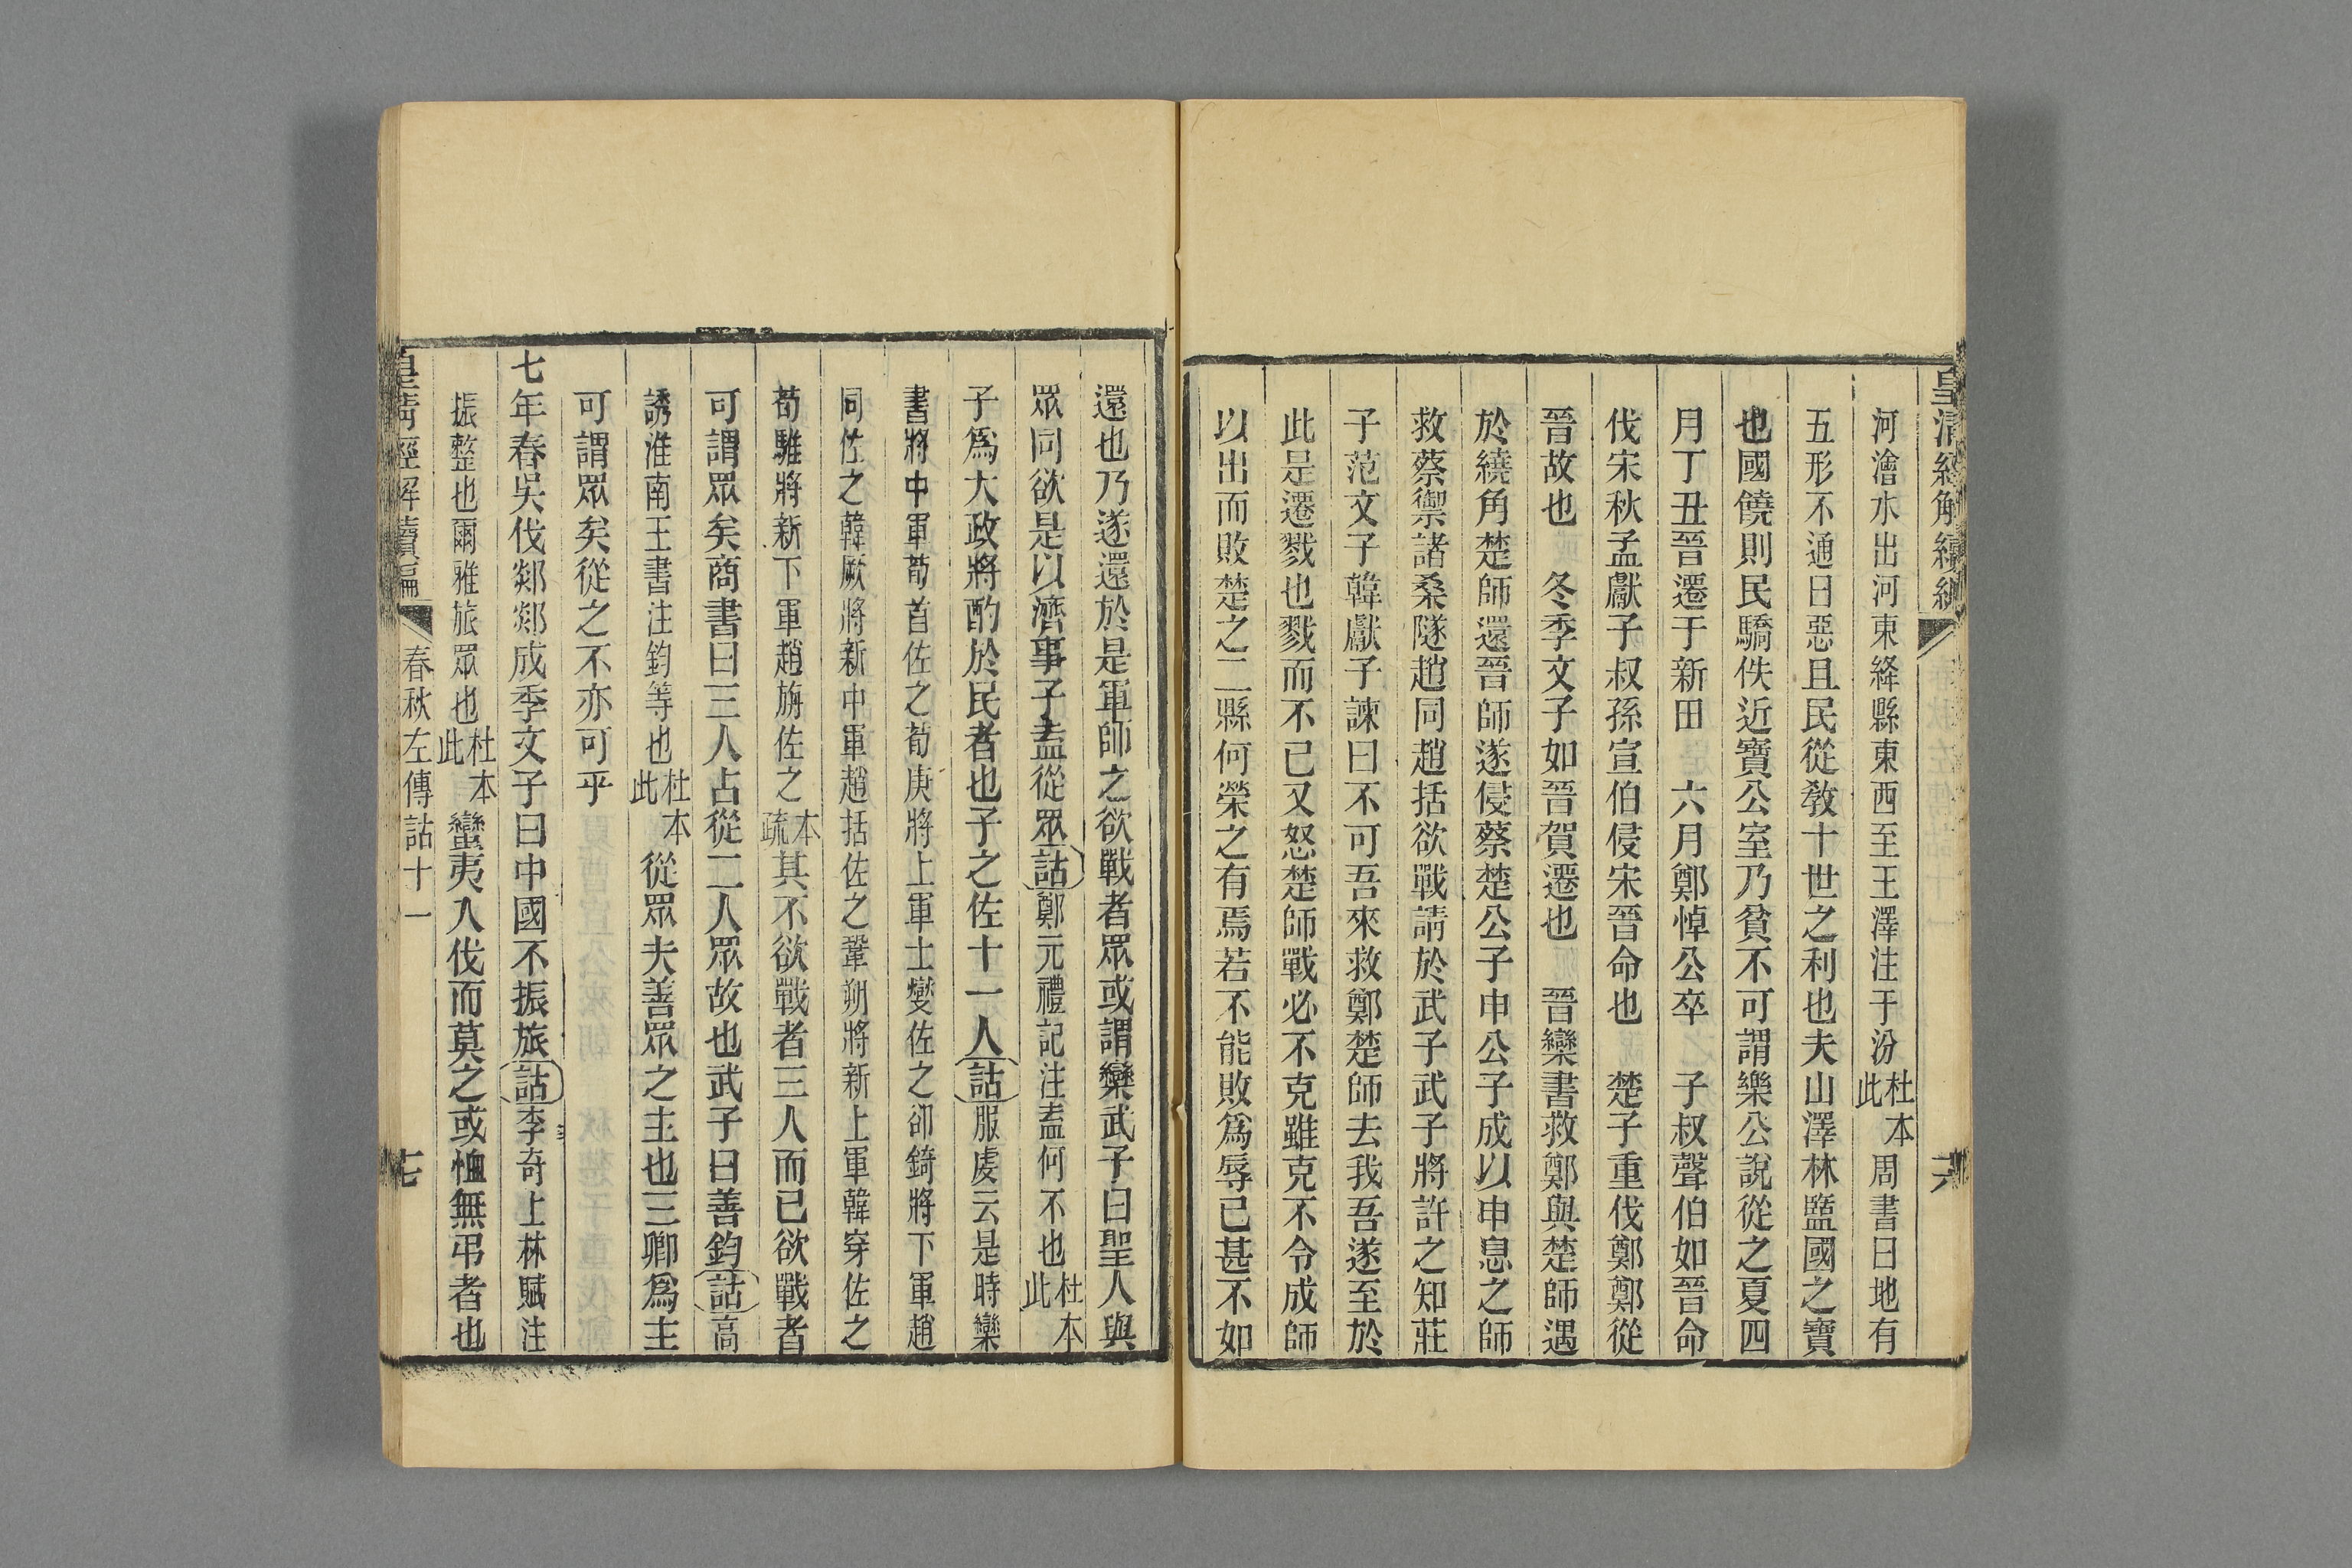 皇清經解續編
六
河澮水出河東絳縣東西至王澤注于汾杜本此周書曰地有
五形不通曰惡且民從敎十世之利也夫山澤林盬國之寶
也國饒則民驕佚近寶公室乃貧不可謂樂公說從之夏四
月丁丑晉遷于新田 六月鄭悼公卒 子叔聲伯如晉命
伐宋秋孟獻子叔孫宣伯侵宋晉命也 楚子重伐鄭鄭從
晉故也 冬季文子如晉賀遷也 晉欒書救鄭與楚師遇
於繞角楚師還晉師遂侵蔡楚公子申公子成以申息之師
救蔡禦諸桑隧趙同趙括欲戰請於武子武子將許之知莊
子范文子韓獻子諫曰不可吾來救鄭楚師去我吾遂至於
此是遷戮也戮而不已又怒楚師戰必不克雖克不令成師
以出而敗楚之二縣何榮之有焉若不能敗爲辱已甚不如
還也乃遂還於是軍師之欲戰者眾或謂欒武子曰聖人與
眾同欲是以濟事子盍從眾詁鄭元禮記注盍何不也杜本此
子爲大政將酌於民者也子之佐十一人詁服虔云是時欒
書將中軍荀首佐之荀庚將上軍士燮佐之卻錡將下軍趙
同佐之韓厥將新中軍趙括佐之鞏朔將新上軍韓穿佐之
荀騅將新下軍趙旃佐之本疏其不欲戰者三人而已欲戰者
可謂眾矣商書曰三人占從二人眾故也武子曰善鈞詁高
誘淮南王書注鈞等也杜本此從眾夫善眾之主也三卿爲主
可謂眾矣從之不亦可乎
七年春吳伐郯郯成季文子曰中國不振旅詁李奇上林賦注
振整也爾雅旅眾也杜本此蠻夷入伐而莫之或恤無弔者也
皇清經解續編
春秋左傳詁十一
七